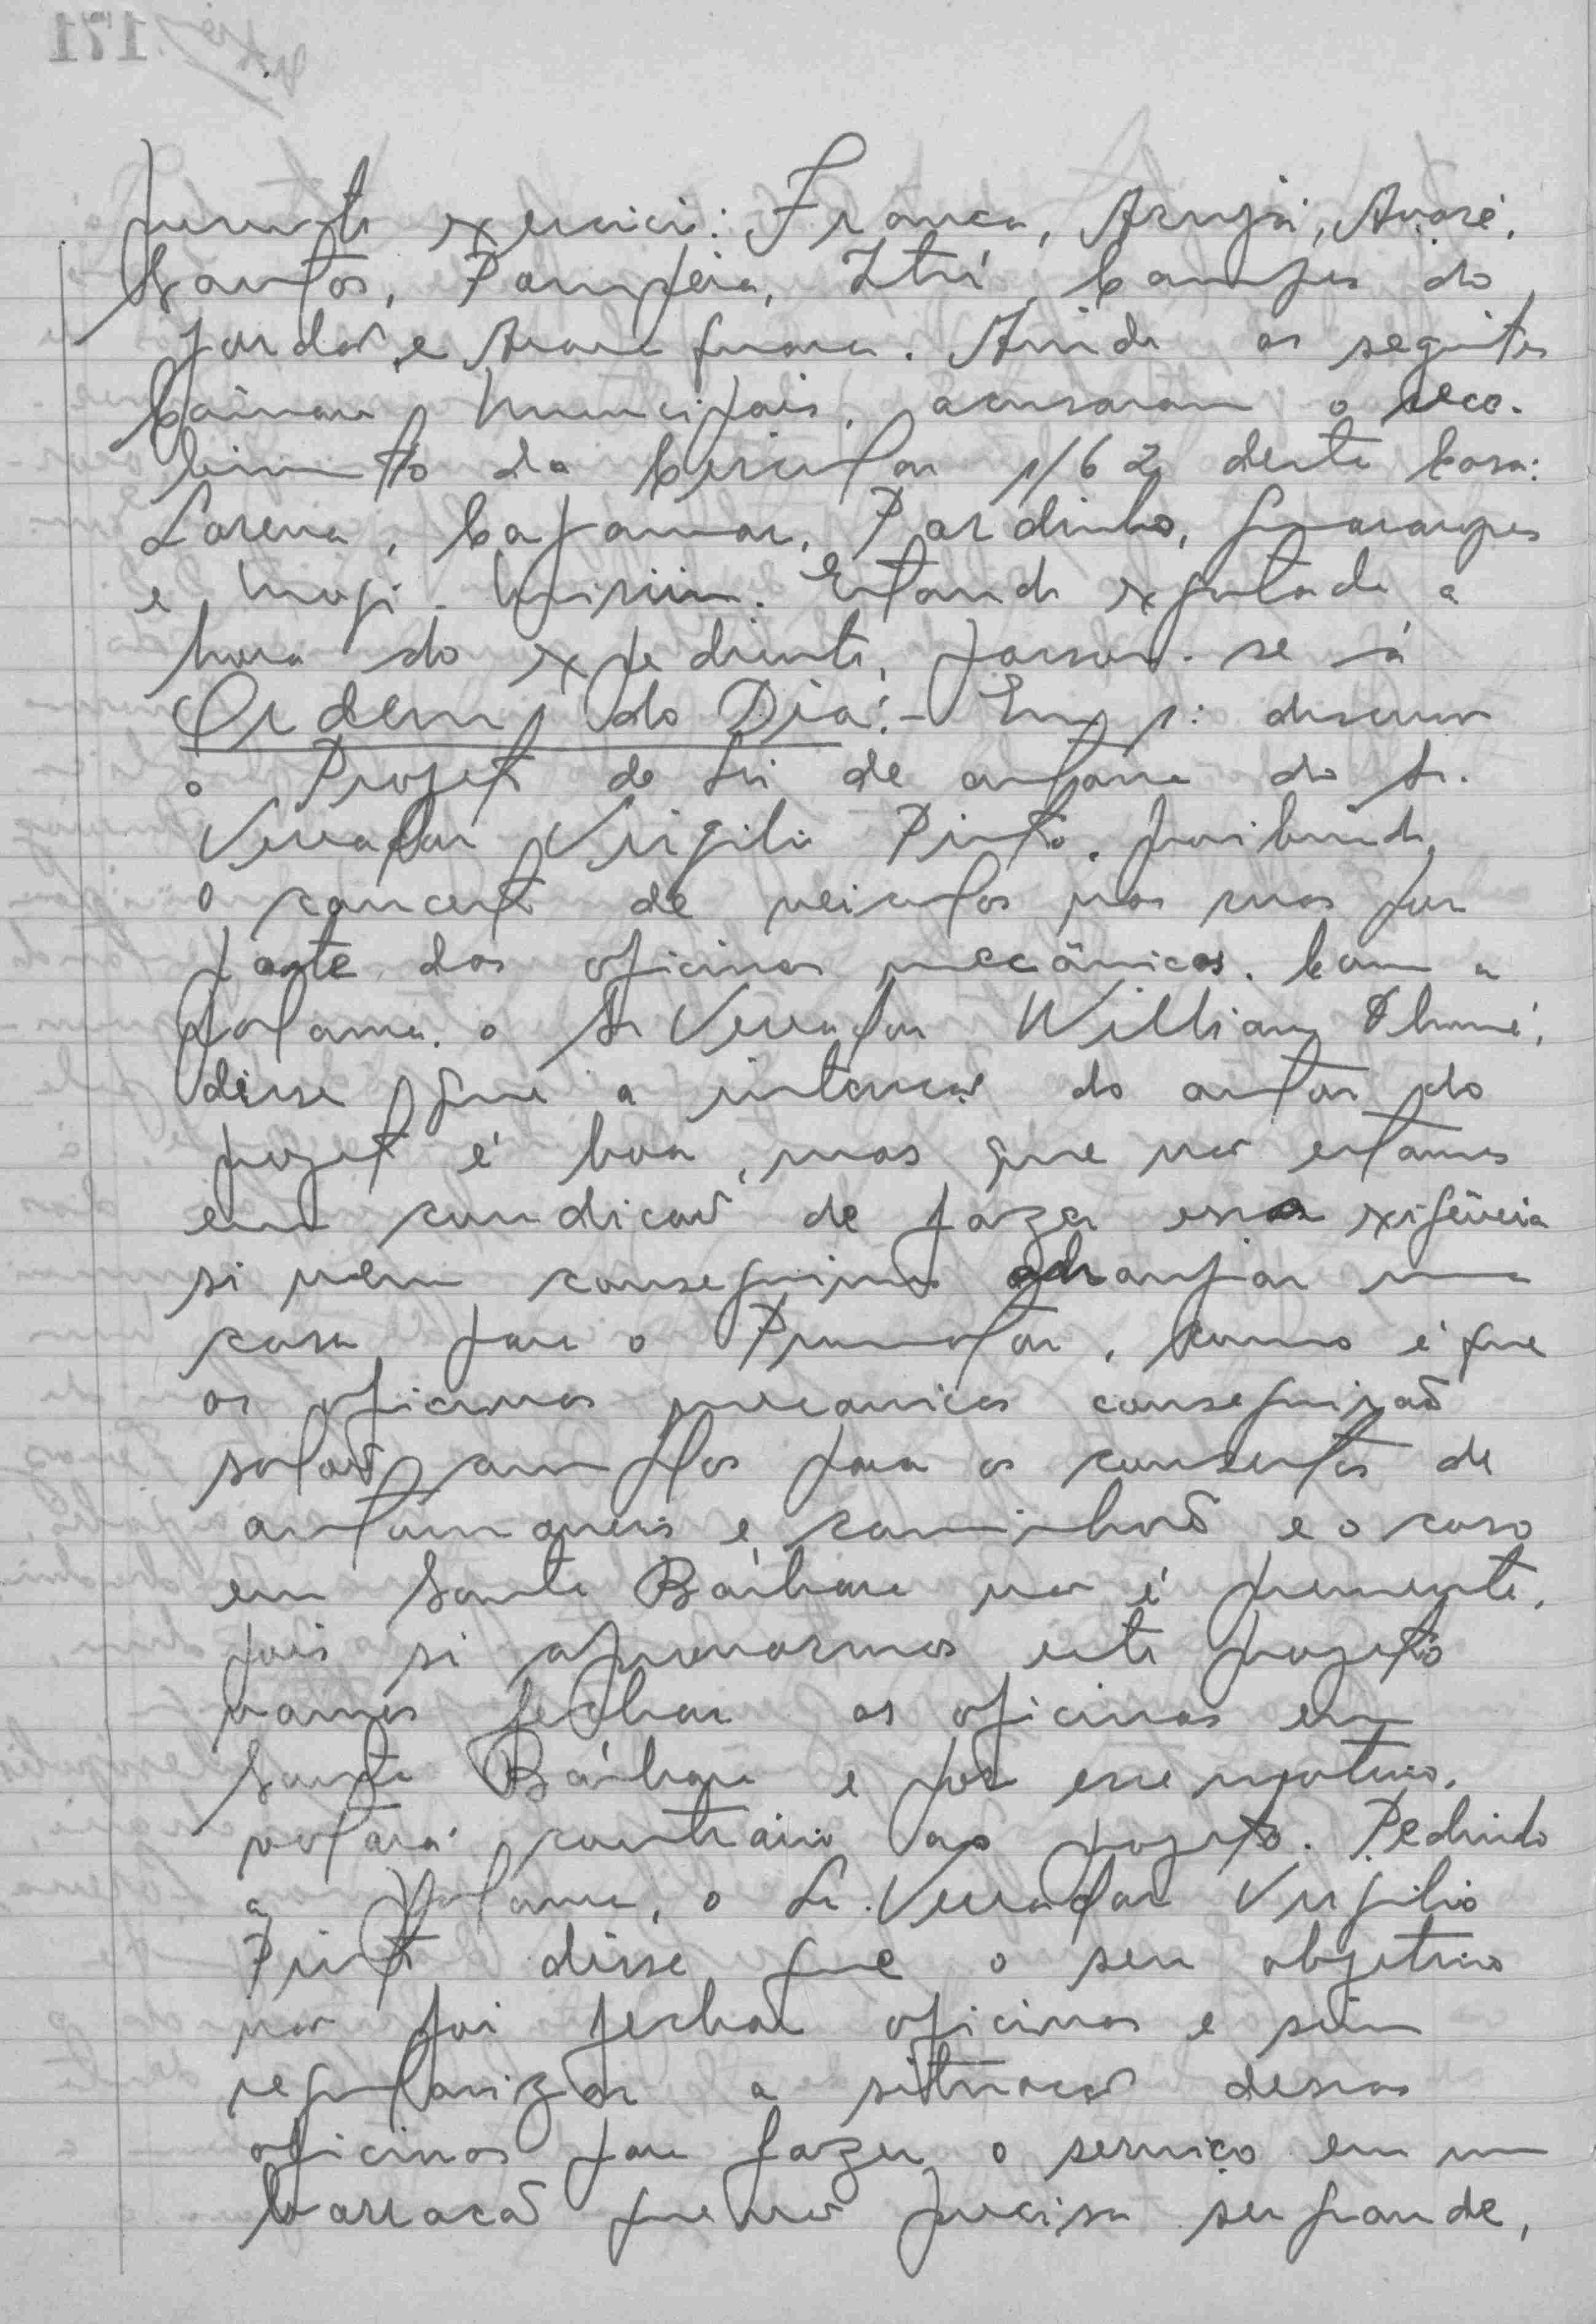 presente exercicio: Franca, Arujá, Avaré,
Santos, Pompéia, Itú, Campos do
Jordão e Araraquara. Ainda as seguintes
Câmaras Municipais, acusaram o rece-
bimento da Circular 1/62 desta Casa:
Lorena, Cajamar, Pardinho, Guararapes
e Mogi-Mirim. Estando esgotada a
hora do expediente, passou-se á
Ordem do Dia:- Em 1ª discussão
o Projeto de Lei de autoria do Sr.
Vereador Virgilio Pinto, proibindo
o concerto de veiculos nas ruas por
parte das oficinas mecânicas. Com a
palavra, o Sr Vereador William
disse que a intenção do autor do
projeto é boa, mas que não estamos
em condições de fazer essa exigência
si nem conseguimos arranjar uma
casa para o Promotor, como é que
as oficinas mecanicas conseguirão
salões amplos para os consertos de
automoveis e caminhões e o caso
em Santa Bárbara não é premente,
pois si aprovarmos este projeto
vamos fechar as oficinas em
Santa Bárbara e por esse motivo,
votará contrário ao projeto. Pedindo
a palavra, o Sr. Vereador Virgilio
Pinto disse que o seu objetivo
não foi fechar oficinas e sim
regularizar a situação dessas
oficinas para fazer o serviço em um
barracão que não precisa ser grande,